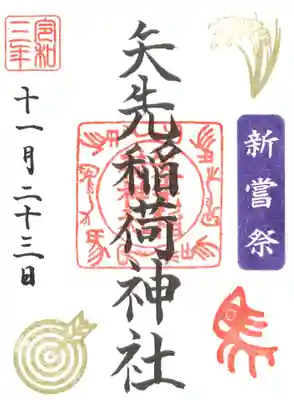 新嘗祭
矢先稲荷神社
令和
三年
十一月二十三日